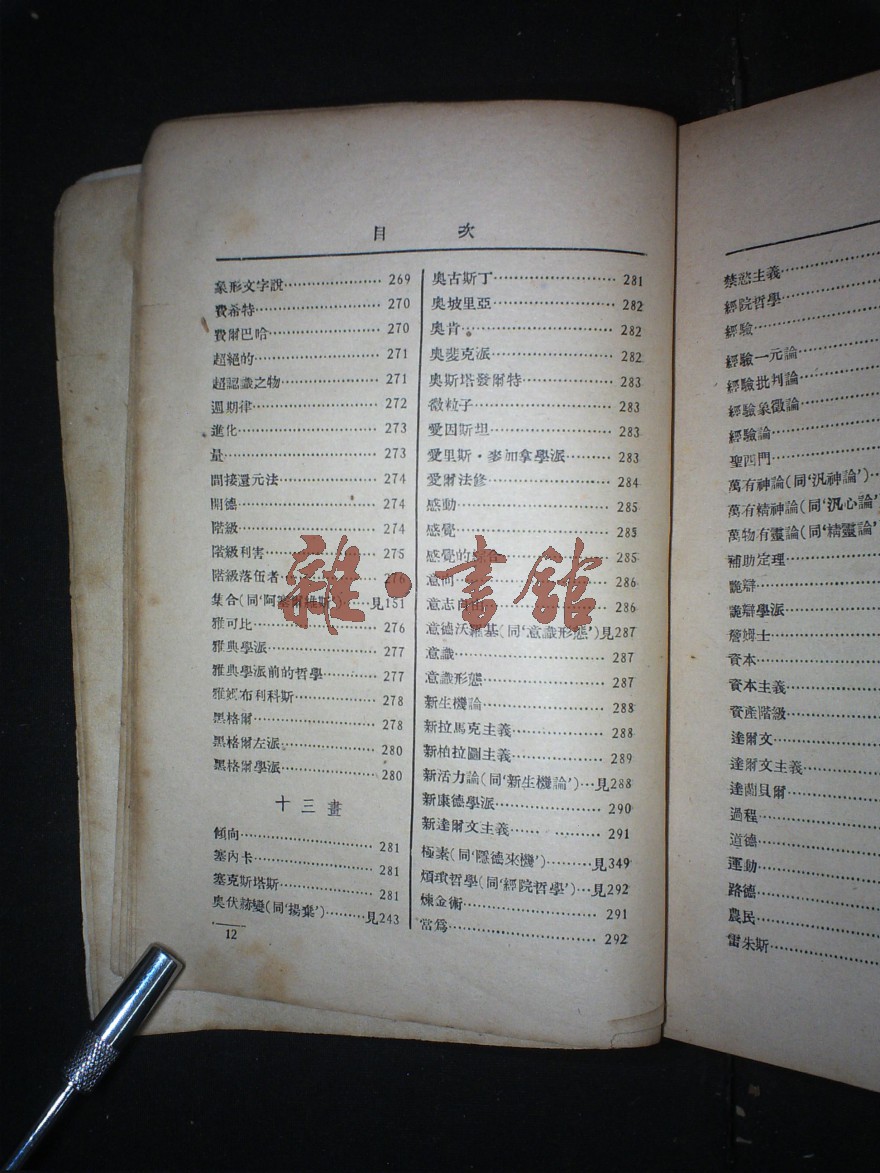 目 次
象形文字說 269
費希特 270
費爾巴哈 270
超絕的 271
超認識之物 271
週期律 272
進化 273
量 273
間接還元法 274
開德 274
階級 274
階級利害 275
階級落伍者 276
集合(同‘阿塞爾維斯’) 見151
雅可比 276
雅典學派 277
雅典學派前的哲學 277
雅姆布利科斯 278
黑格爾 278
黑格爾左派 280
黑格爾學派 280
十三畫
傾向 281
塞內卡 281
塞克斯塔斯 281
奧伏赫變(同‘揚棄’) 見243
12
奧古斯丁 281
奧坡里亞 282
奧肯 282
奧斐克派 282
奧斯塔發爾特 283
微粒子 283
愛因斯坦 283
愛里斯・麥加拿學派 283
愛爾法修 284
感動 285
感覺 285
感覺的綜合 285
意向 286
意志自由 286
意德沃羅基(同‘意識形態’)見287
意識 287
意識形態 287
新生機論 288
新拉馬克主義 288
新柏拉圖主義 289
新活力論(同‘新生機論’) 見288
新康德學派 290
新達爾文主義 291
極素(同‘隱德來機’) 見349
煩瑣哲學(同‘經院哲學’) 見292
煉金術 291
當為 292
禁慾主義
經院哲學
經驗
經驗一元論
經驗批判論
經驗象徵論
經驗論
聖西門
萬有神論(同‘汎神論’)
萬有精神論(同‘汎心論’
萬物有靈論(同‘精靈論’
補助定理
詭辯
詭辯學派
詹姆士
資本
資本主義
資產階級
達爾文
達爾文主義
達蘭貝爾
過程
道德
運動
路德
農民
雷朱斯
雜・書館